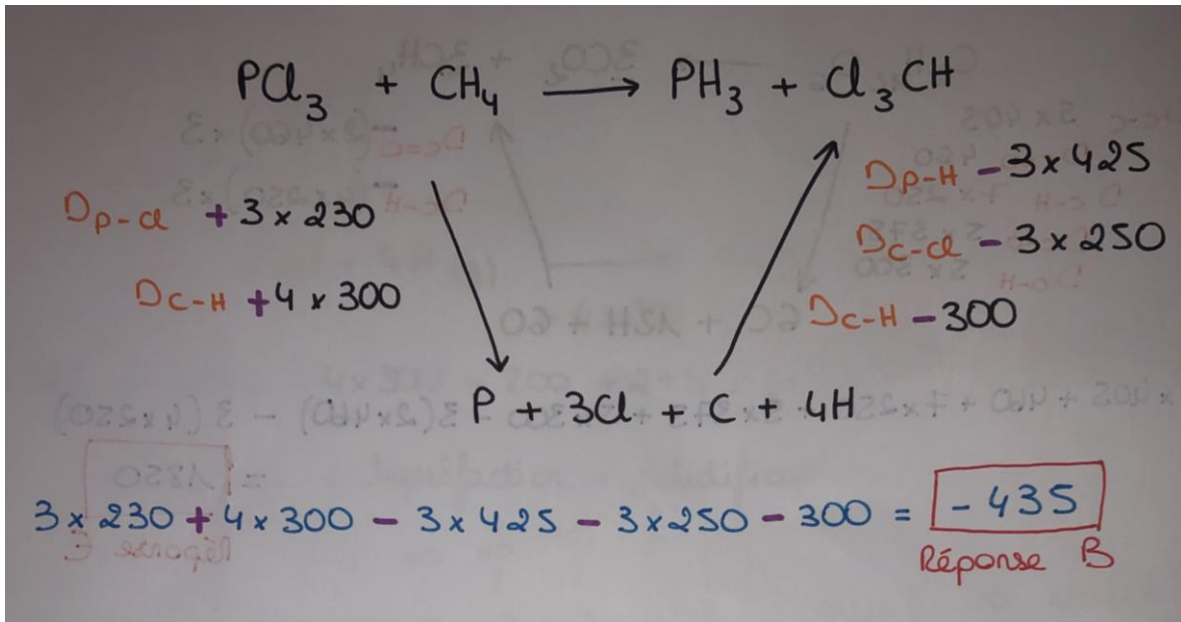 PCl₃ + CH₄ → PH₃ + Cl₃CH
D_P-Cl + 3 x 230
D_C-H + 4 x 300
D_P-H - 3 x 425
D_C-Cl - 3 x 250
D_C-H - 300
P + 3Cl + C + 4H
3 x 230 + 4 x 300 - 3 x 425 - 3 x 250 - 300 = - 435
Réponse B